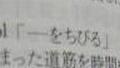 「―をちびる」
まった道筋を時間